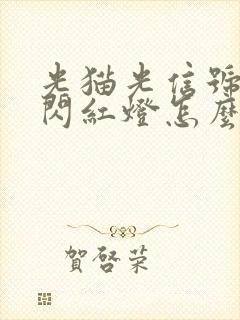 光猫光信號
閃紅燈怎麼
賀啓荣